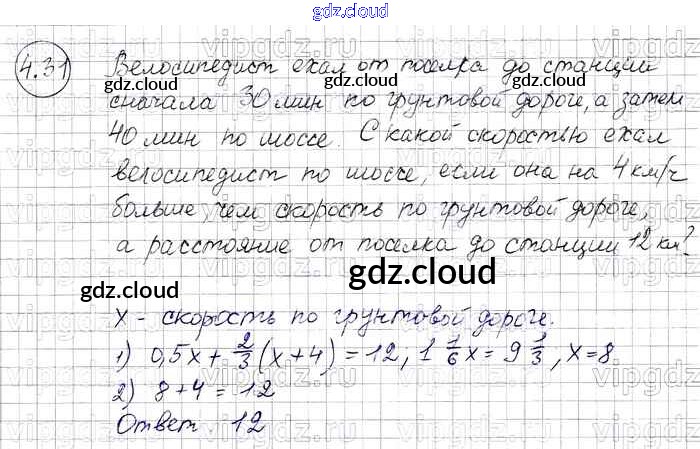 gdz.cloud
4.31 Велосипедист ехал от поселка до станции
gdz.cloud gdz.cloud
сначала 30 мин по грунтовой дороге, а затем
40 мин по шоссе. С какой скоростью ехал
велосипедист по шоссе, если она на 4 км/ч
больше, чем скорость по грунтовой дороге,
а расстояние от поселка до станции 12 км?
gdz.cloud
gdz.cloud gdz.cloud
x - скорость по грунтовой дороге.
1) 0,5x + 2/3 (x+4) = 12, 1 1/6 x = 9 1/3, x=8
2) 8+4=12
Ответ. 12